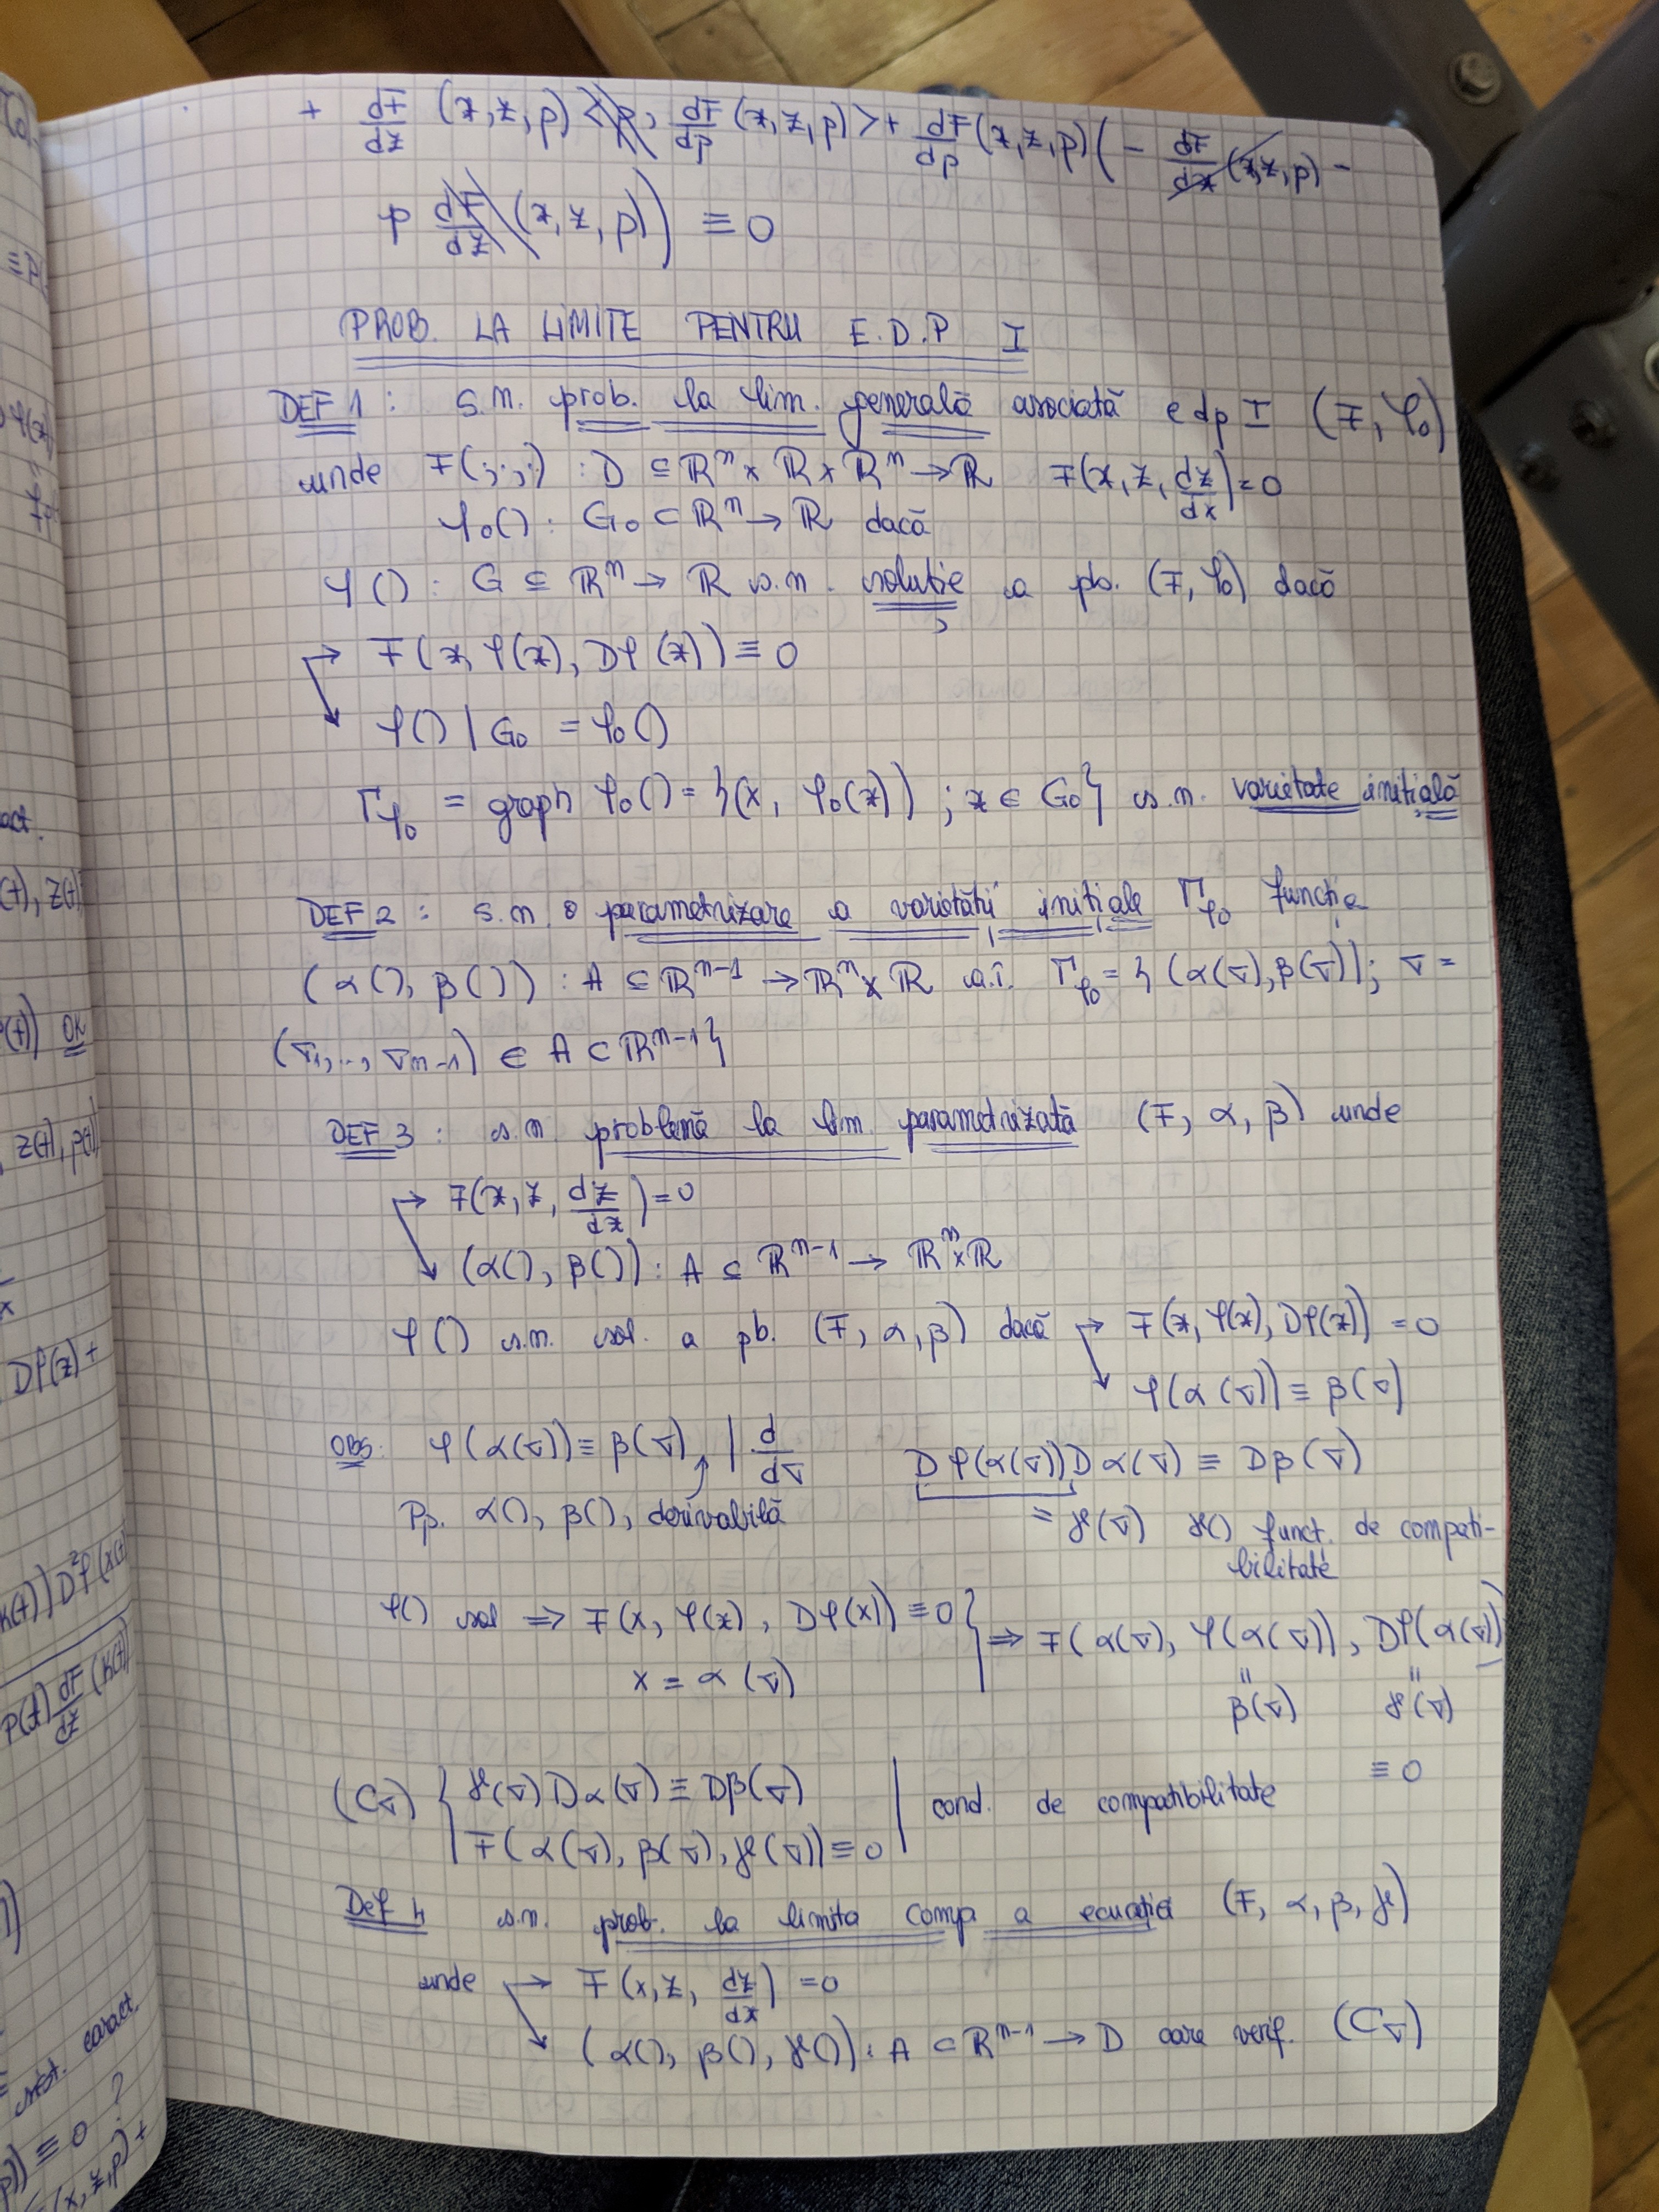 + dF/dz (x, z, p) <p, dF/dp (x, z, p)> + dF/dp (x, z, p) ( - dF/dx (x, z, p) -
p dF/dz (x, z, p) ) ≡ 0
PROB. LA LIMITE PENTRU E.D.P I
DEF 1 : s.n. prob. la lim. generală asociată edp I (F, φ₀)
unde F(·,·,·) : D ⊆ ℝⁿ × ℝ × ℝⁿ → ℝ F(x, z, dz/dx) = 0
φ₀() : G₀ ⊂ ℝⁿ → ℝ dacă
φ() : G ⊆ ℝⁿ → ℝ s.n. soluție a pb. (F, φ₀) dacă
→ F(x, φ(x), Dφ(x)) ≡ 0
↘ φ() | G₀ = φ₀()
Γφ₀ = graph φ₀() = {(x, φ₀(x)) ; x ∈ G₀} s.n. varietate inițială
DEF 2 : s.n. o parametrizare a varietății inițiale Γφ₀ funcția
(α(), β()) : A ⊆ ℝⁿ⁻¹ → ℝⁿ × ℝ a.î. Γφ₀ = { (α(σ), β(σ)) ; σ =
(σ₁, .., σn-1) ∈ A ⊂ ℝⁿ⁻¹}
DEF 3 : s.n. problemă la lim. parametrizată (F, α, β) unde
→ F(x, z, dz/dx) = 0
↘ (α(), β()) : A ⊆ ℝⁿ⁻¹ → ℝⁿ × ℝ
φ() s.n. sol. a pb. (F, α, β) dacă → F(x, φ(x), Dφ(x)) = 0
↘ φ(α(σ)) ≡ β(σ)
OBS. φ(α(σ)) ≡ β(σ) | d/dσ Dφ(α(σ)) Dα(σ) ≡ Dβ(σ)
Pp. α(), β(), derivabilă = γ(σ) γ() funcț. de compati-
bilitate
φ() sol ⇒ F(x, φ(x), Dφ(x)) ≡ 0 } ⇒ F(α(σ), φ(α(σ)), Dφ(α(σ))
x = α(σ) β(σ) γ(σ)
≡ 0
(Cσ) { γ(σ) Dα(σ) ≡ Dβ(σ)
F(α(σ), β(σ), γ(σ)) ≡ 0 | cond. de compatibilitate
Def 4 s.n. prob. la limita comp a ecuației (F, α, β, γ)
unde → F(x, z, dz/dx) = 0
↘ (α(), β(), γ()) : A ⊂ ℝⁿ⁻¹ → D care verif. (Cσ)